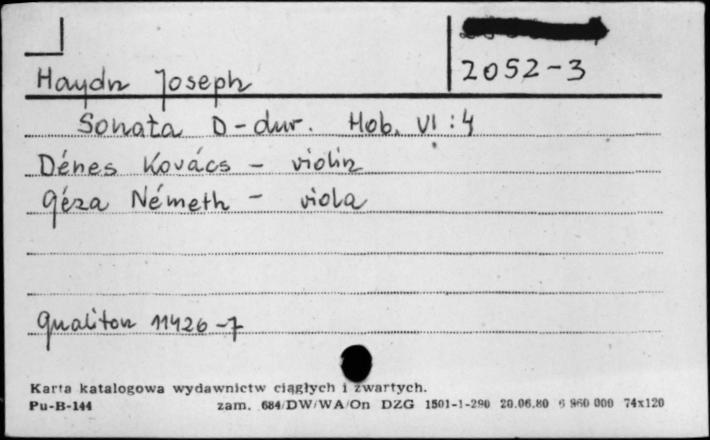 2052-3
Haydn Joseph
Sonata D-dur. Hob. VI:4
Dénes Kovács - violin
Géza Németh - viola
Qualiton 11426-7
Karta katalogowa wydawnictw ciągłych i zwartych.
Pu-B-144 zam. 684/DW/WA/On DZG 1501-1-290 20.06.80 6 960 000 74x120